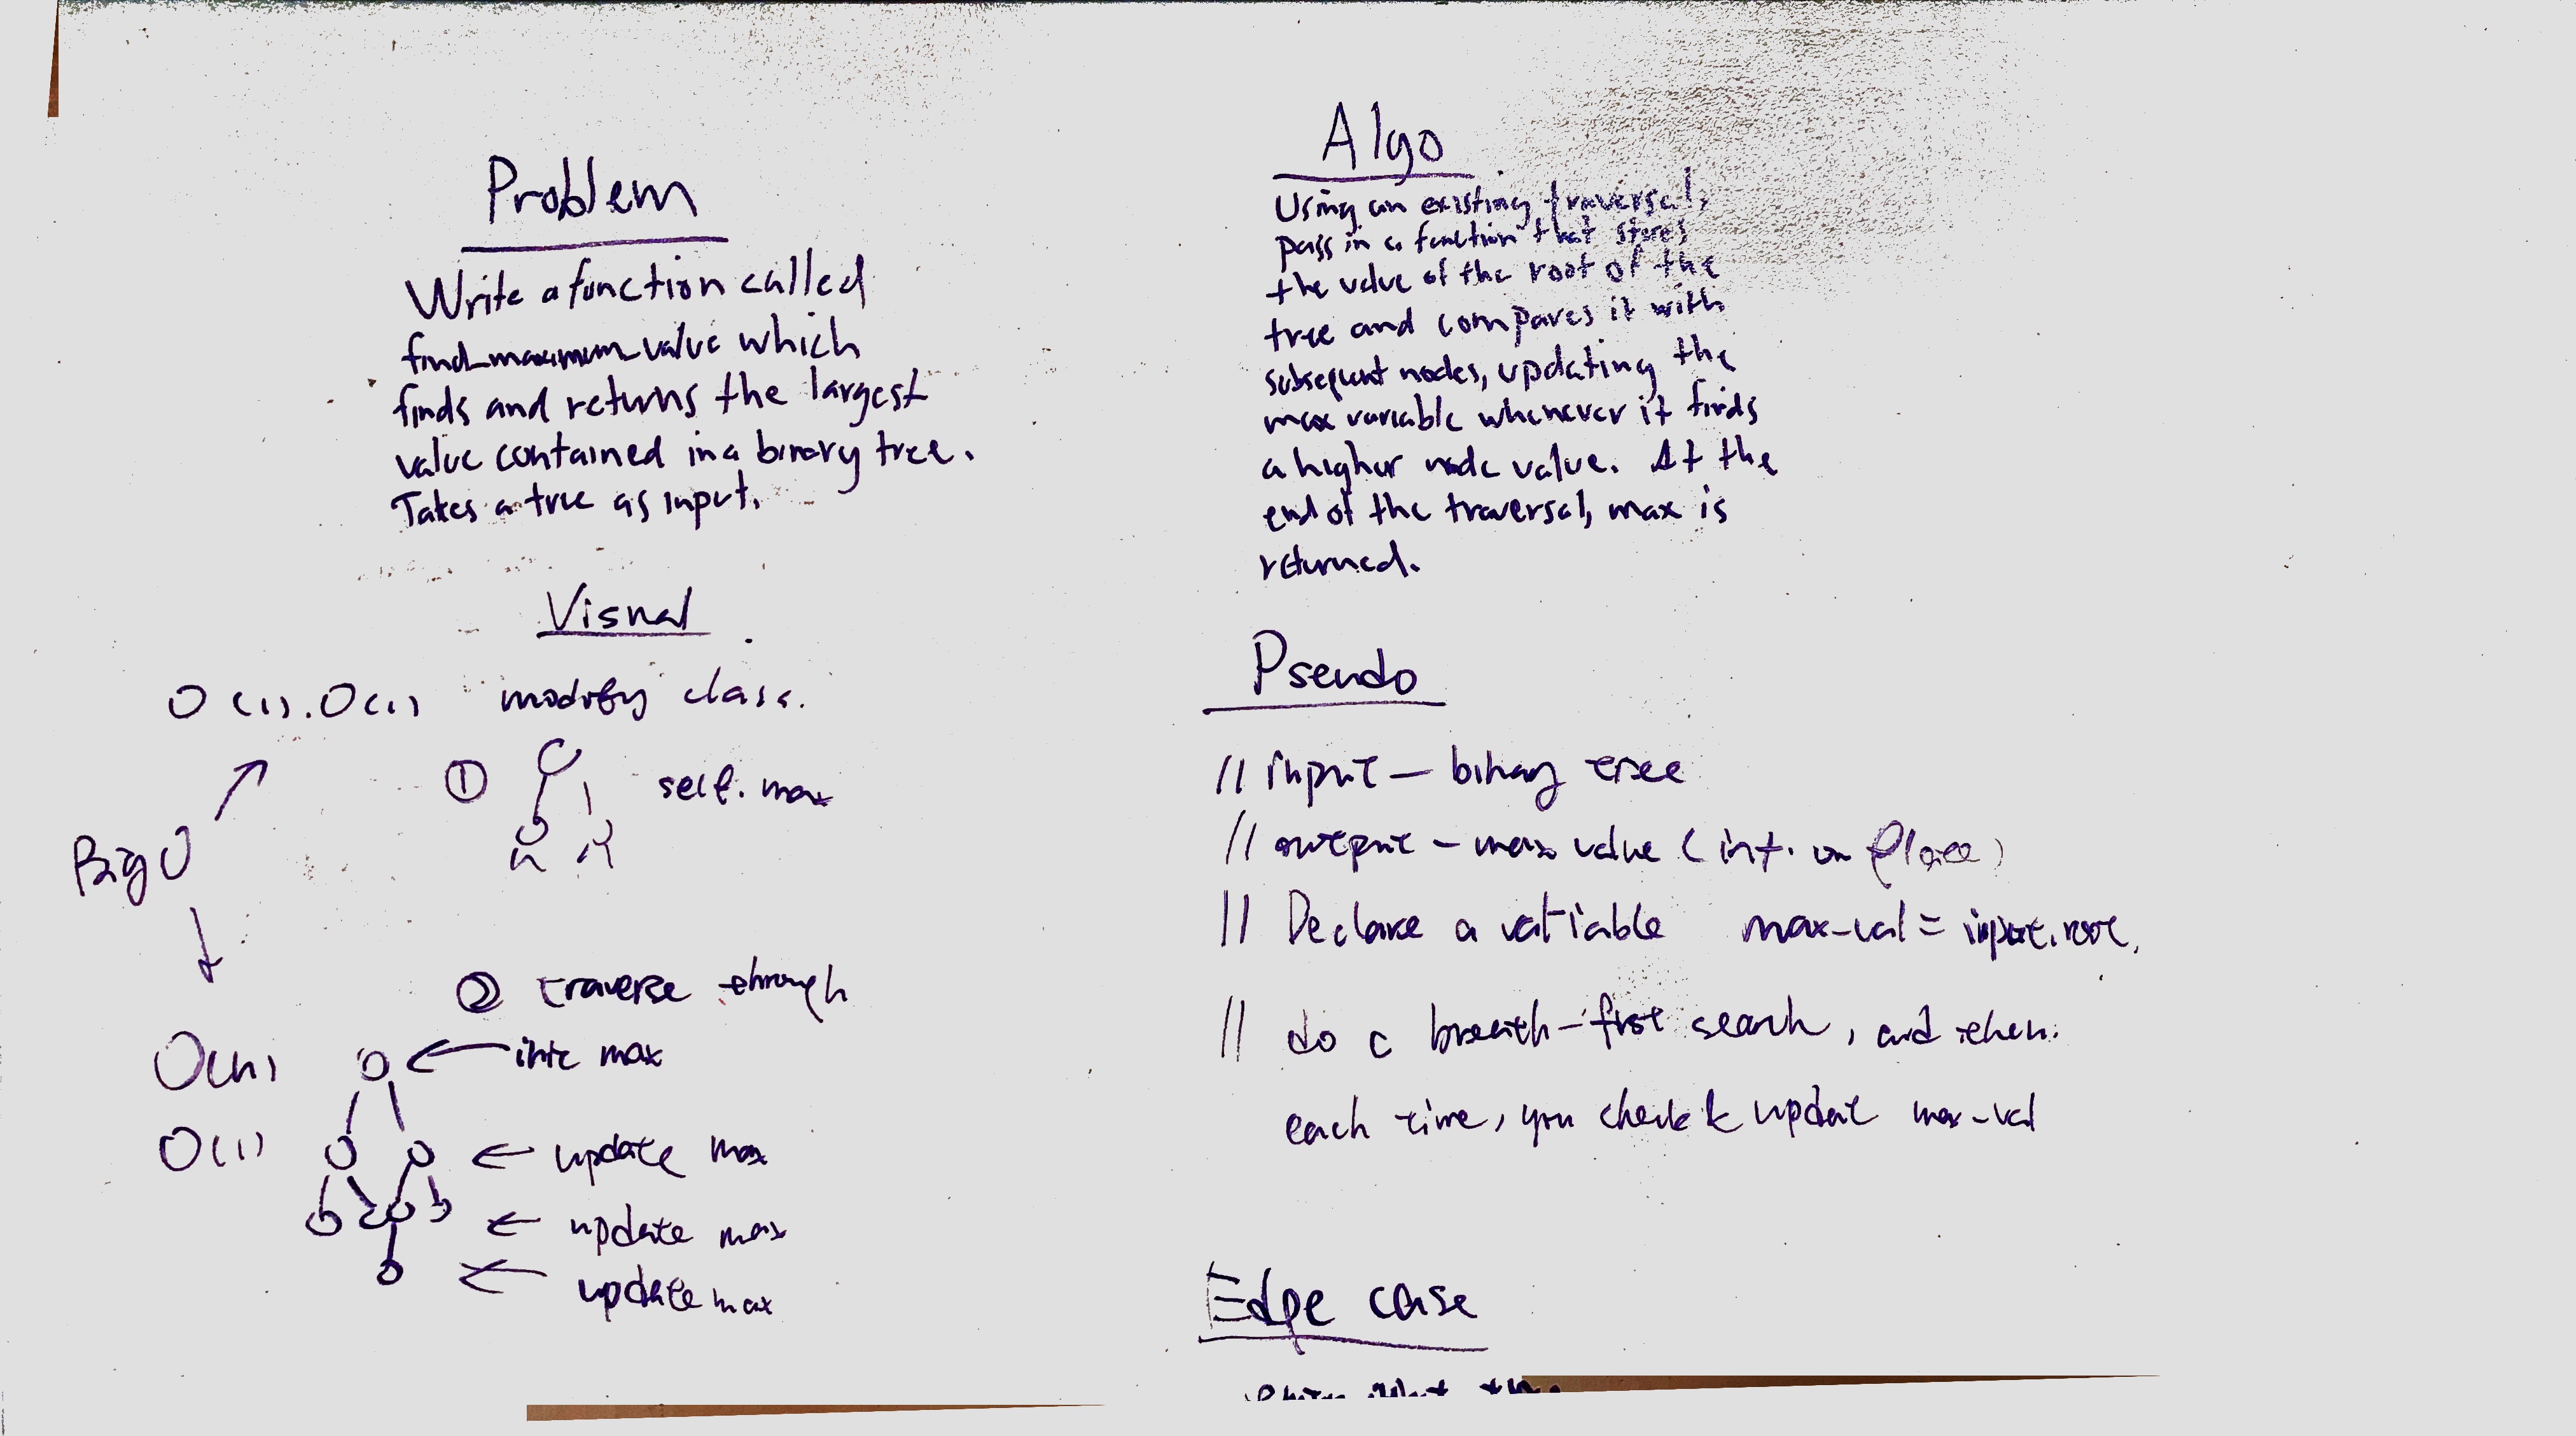 Problem
Write a function called
find_maximum_value which
finds and returns the largest
value contained in a binary tree.
Takes a tree as input.
Visual
O(1). O(1) modify class.
① self. max
Big O
② traverse through
O(n) init max
O(1) update max
update max
update max
Algo
Using an existing traversal,
pass in a function that stores
the value of the root of the
tree and compares it with
subsequent nodes, updating the
max variable whenever it finds
a higher node value. At the
end of the traversal, max is
returned.
Pseudo
// input - binay tree
// output - max value (int. or
// Declare a variable max-val = input.root.
// do a breath-first search, and then.
each time, you check & update max-val
Edge case